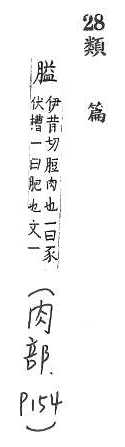 28類篇
膉
伊昔切脰肉也一曰豕
伏槽一曰肥也文一
(肉部.
P154)